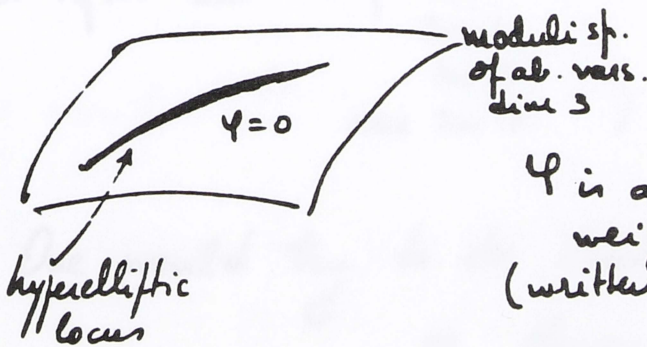 moduli sp.
of ab. vars.
dim 3
φ=0
φ is a
wei
(written
hyperelliptic
locus